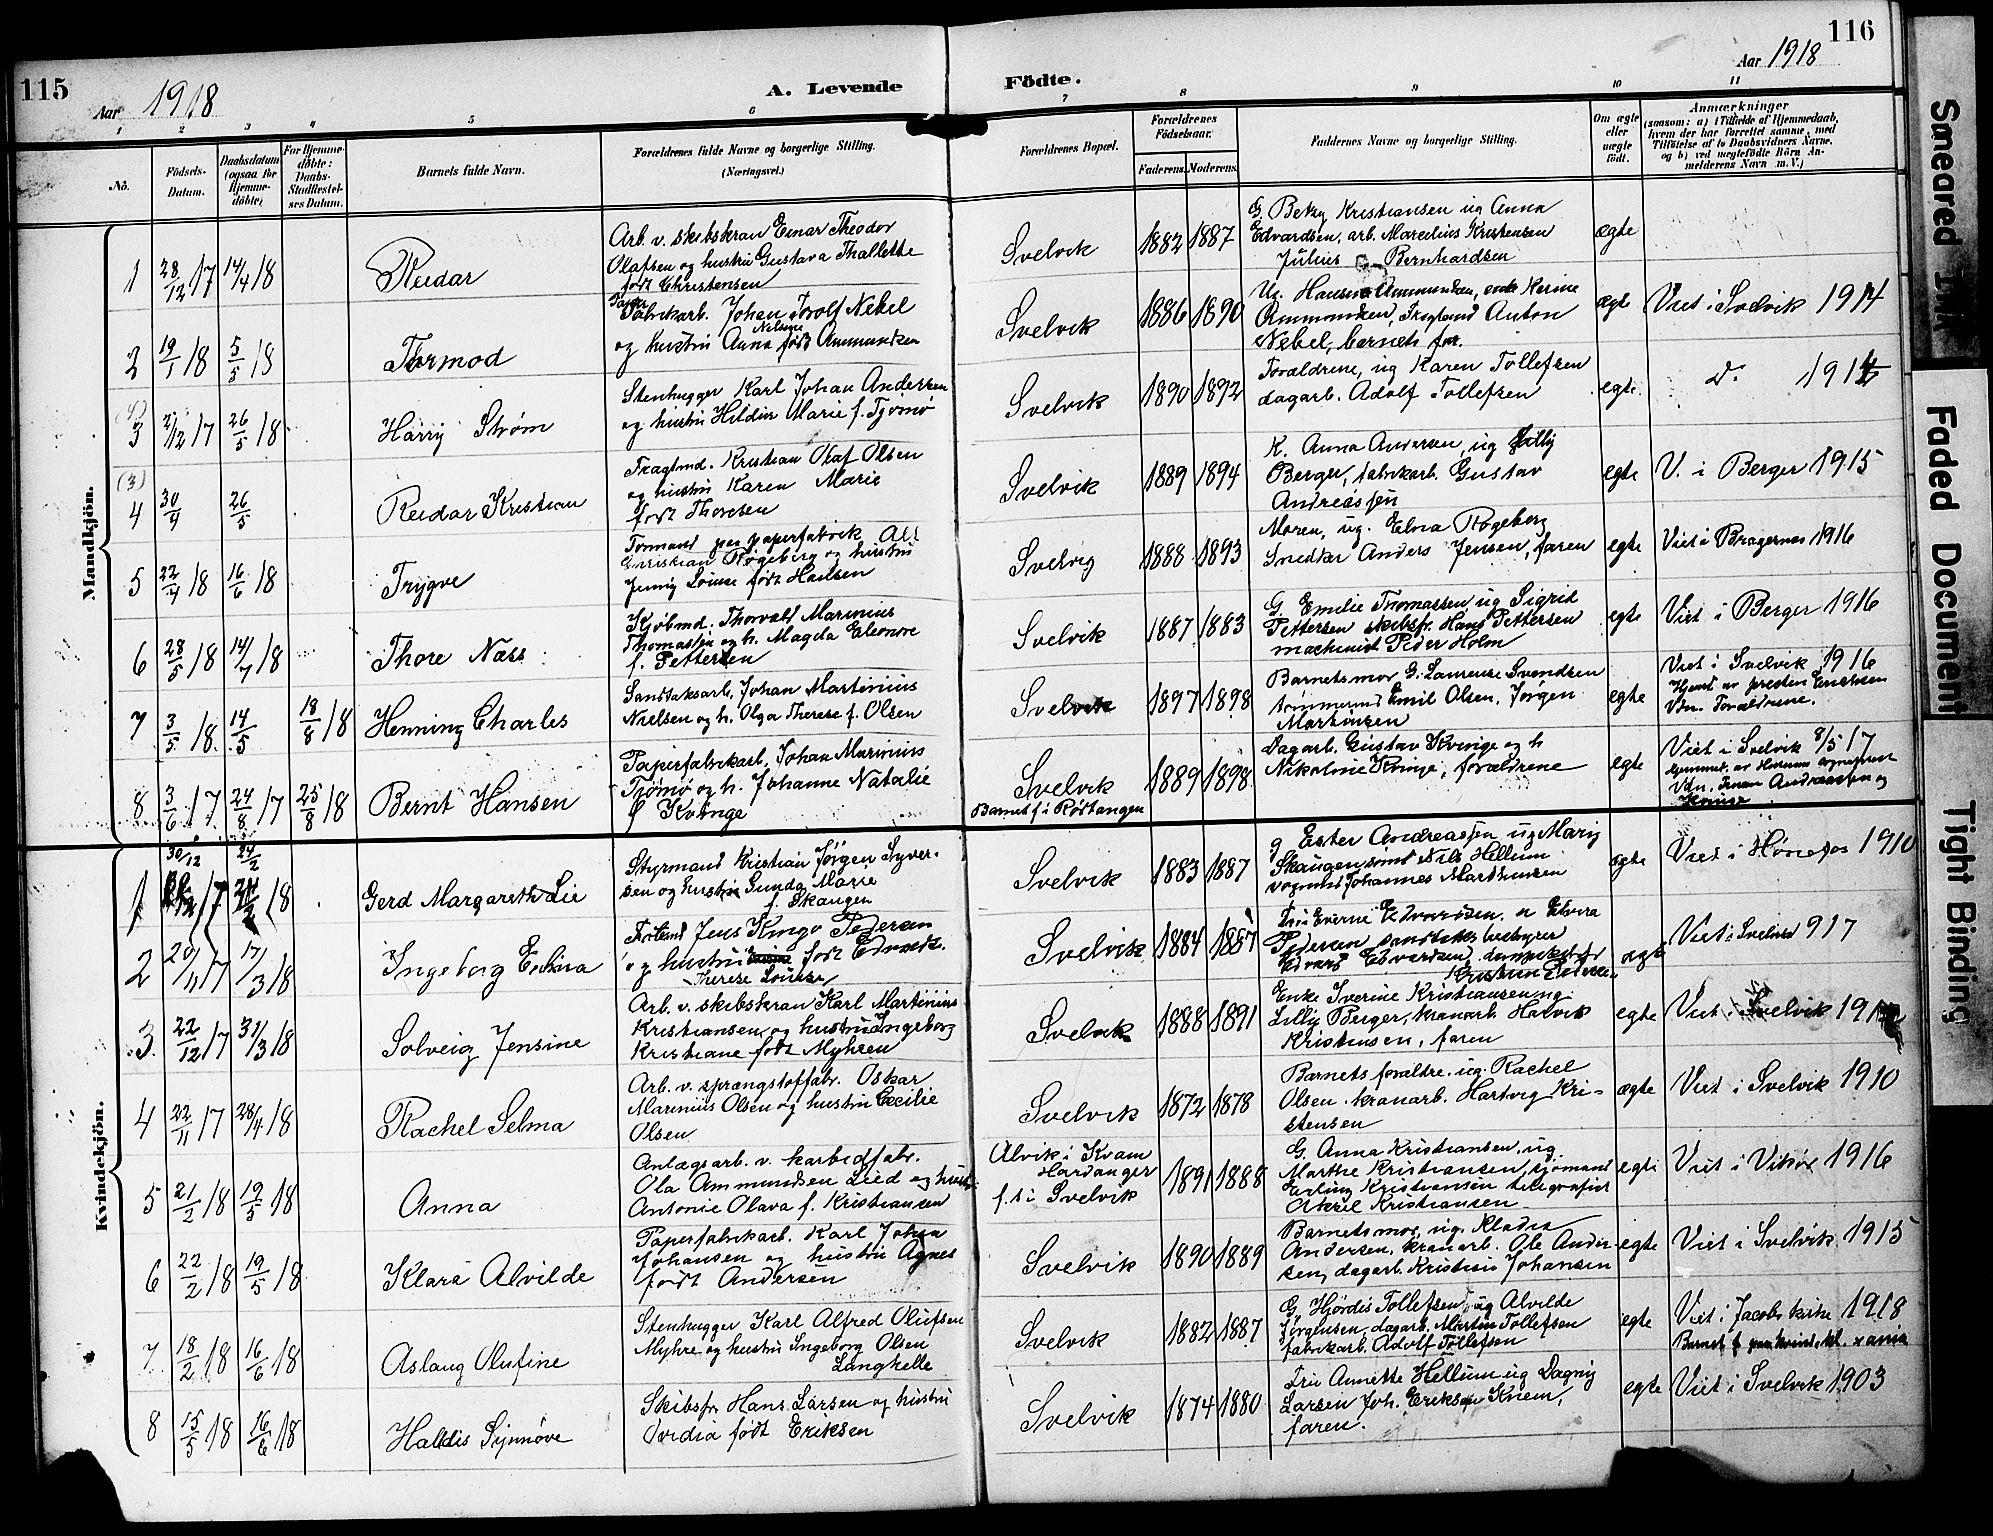 115
Aar 1918
A. Levende
Födte.
Aar 1918
116
1 2 3 4 5 6 7 8 9 10 11
No.
Födsels-
Datum.
Daabsdatum
(ogsaa for
Hjemme-
döbte)
For Hjemme-
döbte:
Daabs-
Stadfæstel-
ses Datum.
Barnets fulde Navn.
Forældrenes fulde Navne og borgerlige Stilling.
(Næringsvei.)
Forældrenes Bopæl.
Forældrenes
Födselsaar.
Faderens. Moderens.
Faddernes Navne og borgerlige Stilling.
Om ægte
eller
uægte
födt.
Anmærkninger
(saasom: a) i Tilfælde af Hjemmedaab,
hvem der har forrettet samme, med
Tilföielse af to Daabsvidners Navne,
og b) ved uægtefödte Börn An-
melderens Navn m. V.)
Mandkjön.
1 28/12 17 14/4 18
Reidar
Arb. v. skibskran Einar Theodor
Olafsen og hustru Gustava Thallette
født Christensen
Svelvik
1882 1887
G. Betzy Kristiansen ug Anna
Edvardsen, arb. Marcelius Kristensen
Julius Bernhardsen
ægte
2 19/1 18 5/5 18
Tormod
Papir
Fabrikarb. Johan Torolf Nebel
og hustru Anna Nelsine født Ammundsen
Svelvik
1886 1890
Ug. Hansine Ammundsen, enke Karine
Ammundsen, Fragtmd Anton
Nebel, barnets far.
ægte
Viet i Svelvik 1914
3 2/12 17 26/5 18
Harry Strøm
Stenhugger Karl Johan Andersen
og hustru Hildur Marie f. Tjømø
Svelvik
1890 1892
Forældrene, ug Karen Tollefsen
dagarb. Adolf Tollefsen
egte.
d. 1914
(3)
4 30/4 26/5
Reidar Kristian
Fragtmd. Kristian Olaf Olsen
og hustru Karen Marie
født Thoresen
Svelvik
1889 1894
K. Anna Andersen, ug Lilly
Berger, fabrikarb. Gustav
Andreassen
egte
V. i Berger 1915
5 22/4 18 16/6 18
Trygve
Formand paa papirfabrik Alf
Christian Røgeberg og hustru
Jenny Louise født Hansen
Svelvig
1888 1893
Moren, ug. Elna Røgeberg
Snedker Anders Jensen, faren
egte
Viet i Bragernes 1916
6 28/5 18 14/7 18
Thore Næss
Kjøbmd. Thorvald Marinius
Thomassen og h. Magda Eleonore
f. Pettersen
Svelvik
1887 1883
G. Emilie Thomassen ug Sigrid
Pettersen skibsfr. Hans Pettersen
machinist Peder Holm
egte
Viet i Berger 1916
7 3/5 18 14/5 18/8 18
Henning Charles
Sandtaksarb. Johan Martinius
Nielsen og h. Olga Therese f. Olsen
Svelvik
1897 1898
Barnets mor G. Laurense Svendsen
tømmermd Emil Olsen, Jørgen
Martinsen
egte
Viet i Svelvik 1916
Hjemd av presten Erichsen
Vdn. Forældrene.
8 3/6 17 24/8 17 25/8 18
Bernt Hansen
Papirfabrikarb. Johan Marinius
Tjømø og h. Johanne Natalie
f Kvinge
Svelvik
Barnet f i Rødtangen
1889 1898
Dagarb. Gustav Kvinge og h
Nikoline Kvinge, forældrene
egte
Viet i Svelvik 8/5 17
Hjemmed. av Hurum sogneprest
Vdn. Andreassen og
Kvinge
Kvindekjön.
1 30/12 17 24/2 18
Gerd Margareth Lie
Styrmand Kristian Jørgen Syver-
sen og hustru Gunda Marie
f. Skaugen
Svelvik
1883 1887
g Ester Andreassen, ug Mary
Skaugen smd Nils Hellum
vognmd Johannes Mathiesen
ægte
Viet i Hønefos 1910
2 20/11 17 17/3 18
Ingeborg
Jens Kingo Pedersen
og hustru født
Therese Louise
Svelvik
1884 1887
Edvardsen, Elvira
Pedersen sandtaksbestyrer
Edvard Edvardsen,
Kristian Pedersen
ægte
Viet i Svelvik 917
3. 22/12 17 31/3 18
Solveig Jensine
Arb. v. skibskran Karl Martinius
Kristiansen og hustru Ingeborg
Kristiane født Myhren
Svelvik
1888 1891
Enke Iverine Kristiansen ug
Lilly Berger, kranarb Halvik
Kristensen, faren
egte
Viet i Svelvik
4 22/11 17 28/4 18
Rachel Selma
Arb. v. sprængstoffabr. Oskar
Marinius Olsen og hustru Cecilie
Olsen
Svelvik
1872 1878
Barnets forældre, ug. Rachel
Olsen, kranarb. Hartvig Kri-
stensen
ægte
Viet i Svelvik 1910
5 21/2 18 19/5 18
Anna
Anlægsarb. v. karbidfabr.
Ola Ammundsen Lied og hustr.
Antonie Olava f. Kristiansen
Alvik i Kvam
Hardanger
f. t i Svelvik
1891 1888
G. Anna Kristiansen, ug.
Marthe Kristiansen, sjømand
Erling Kristiansen telegrafist
Aksel Kristiansen
egte
Viet i Vikør 1916
6 22/2 18 19/5 18
Klara Alvilde
Papirfabrikarb. Karl Johan
Johansen og hustru Agnes
født Andersen
Svelvik
1890 1889
Barnets mor, ug. Kladia
Andersen, kranarb. Ole Ander-
sen, dagarb. Kristian Johansen
egte
Viet i Svelvik 1915
7 18/2 18 16/6 18
Aslaug Olufine
Stenhugger Karl Alfred Olufsen
Myhre og hustru Ingeborg Olsen
Langhelle
Svelvik
1882 1887
G. Hjørdis Tollefsen, ug Alvilde
Jørgensen, dagarb. Martin Tollefsen
fabrikarb. Adolf Tollefsen
egte
Viet i Jacobs kirke 1918
Barnet f paa
8 15/5 18 16/6 18
Haldis Synnøve
Skibsfr. Hans Larsen og hustru
Ovidia født Eriksen
Svelvik
1874 1880
Fru Annette Hellum ug Dagny
Larsen Joh. Eriksen Knem,
faren.
egte
Viet i Svelvik 1903
Smeared Ink
Faded Document
Tight Binding